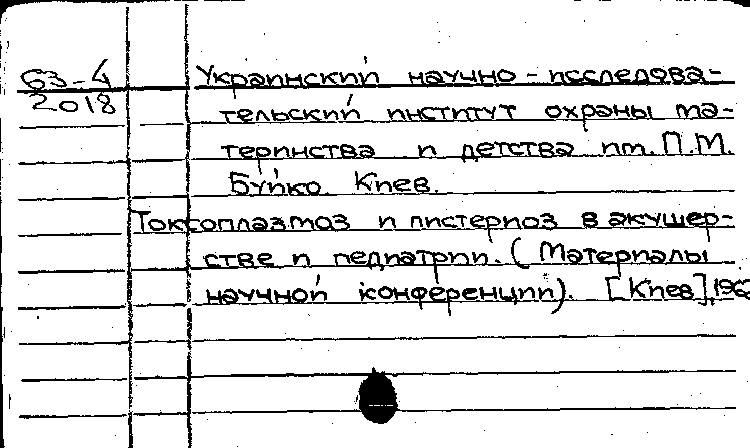 63-4
2018
Украинский научно-исследова-
тельский институт охраны ма-
теринства и детства им. П.М.
Буйко. Киев.
Токсоплазмоз и листериоз в акушер-
стве и педиатрии. (Материалы
научной конференции). [Киев],